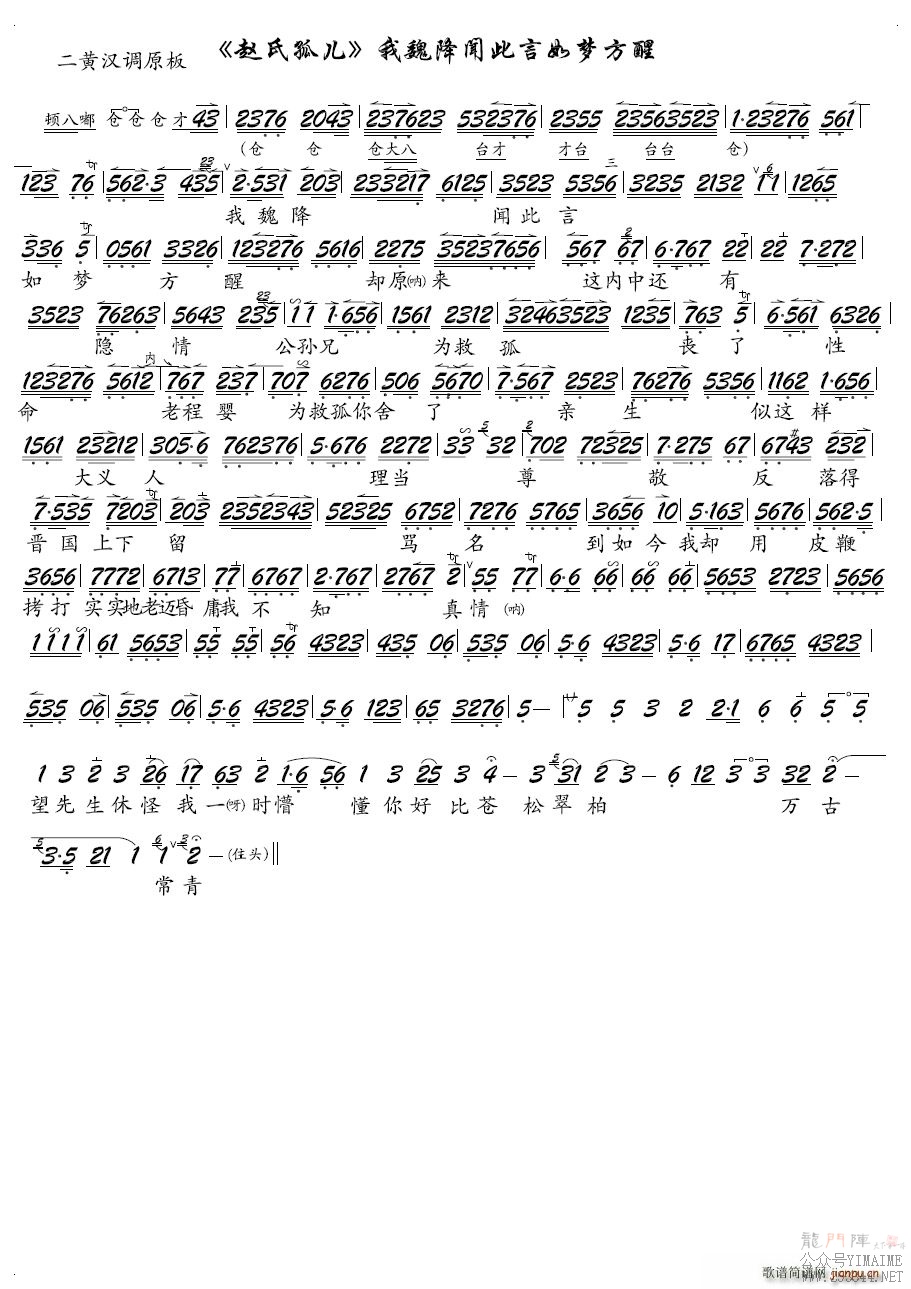 《赵氏孤儿》我魏降闻此言如梦方醒
二黄汉调原板
顿八嘟 仓仓仓才 43 | 2376 2043 | 237623 532376 | 2355 23563523 | 1·23276 561 |
(仓 仓 仓大八 台才 才台 台台 仓)
123 76 | 562·3 435 | 2·531 203 | 233217 6125 | 3523 5356 | 3235 2132 11 | 1265
我魏降 闻此言
336 5 | 0561 3326 | 123276 5616 | 2275 35237656 | 567 67 | 6·767 22 | 22 7·272 |
如梦方醒 却原(呐)来 这内中还有
3523 76263 | 5643 235 | 11 1·656 | 1561 2312 | 32463523 1235 | 763 5 | 6·561 6326 |
隐情 公孙兄 为救孤 丧了性
内
123276 5612 | 767 237 | 707 6276 | 506 5670 | 7·567 2523 | 76276 5356 | 1162 1·656 |
命 老程婴 为救孤你舍了 亲生 似这样
1561 23212 | 305·6 762376 | 5·676 2272 | 33 32 | 702 72325 | 7·275 67 | 6743 232 |
大义人 理当尊敬 反落得
7·535 7203 | 203 2352343 | 52325 6752 | 7276 5765 | 3656 10 | 5·163 5676 | 562·5 |
晋国上下留 骂名 到如今我却用皮鞭
3656 | 7772 | 6713 | 77 | 6767 | 2·767 | 2767 2 | 55 77 | 6·6 66 | 66 66 | 5653 2723 | 5656
拷打 实实地老迈昏庸我不知 真情(呐)
1111 | 61 5653 | 55 55 | 56 4323 | 435 06 | 535 06 | 5·6 4323 | 5·6 17 | 6765 4323 |
535 06 | 535 06 | 5·6 4323 | 5·6 123 | 65 3276 | 5— | サ 5 5 3 2 2·1 6 6 5 5
1 3 2 3 26 17 63 2 1·6 56 1 3 25 3 4— 31 2 3— 6 12 3 3 32 2—
望先生休怪我一(呀)时懵懂你好比苍松翠柏 万古
3·5 21 1 1 2 —(住头)‖
常青
龍門陣
公众号YIMAIME
歌谱简谱网 jianpu.cn